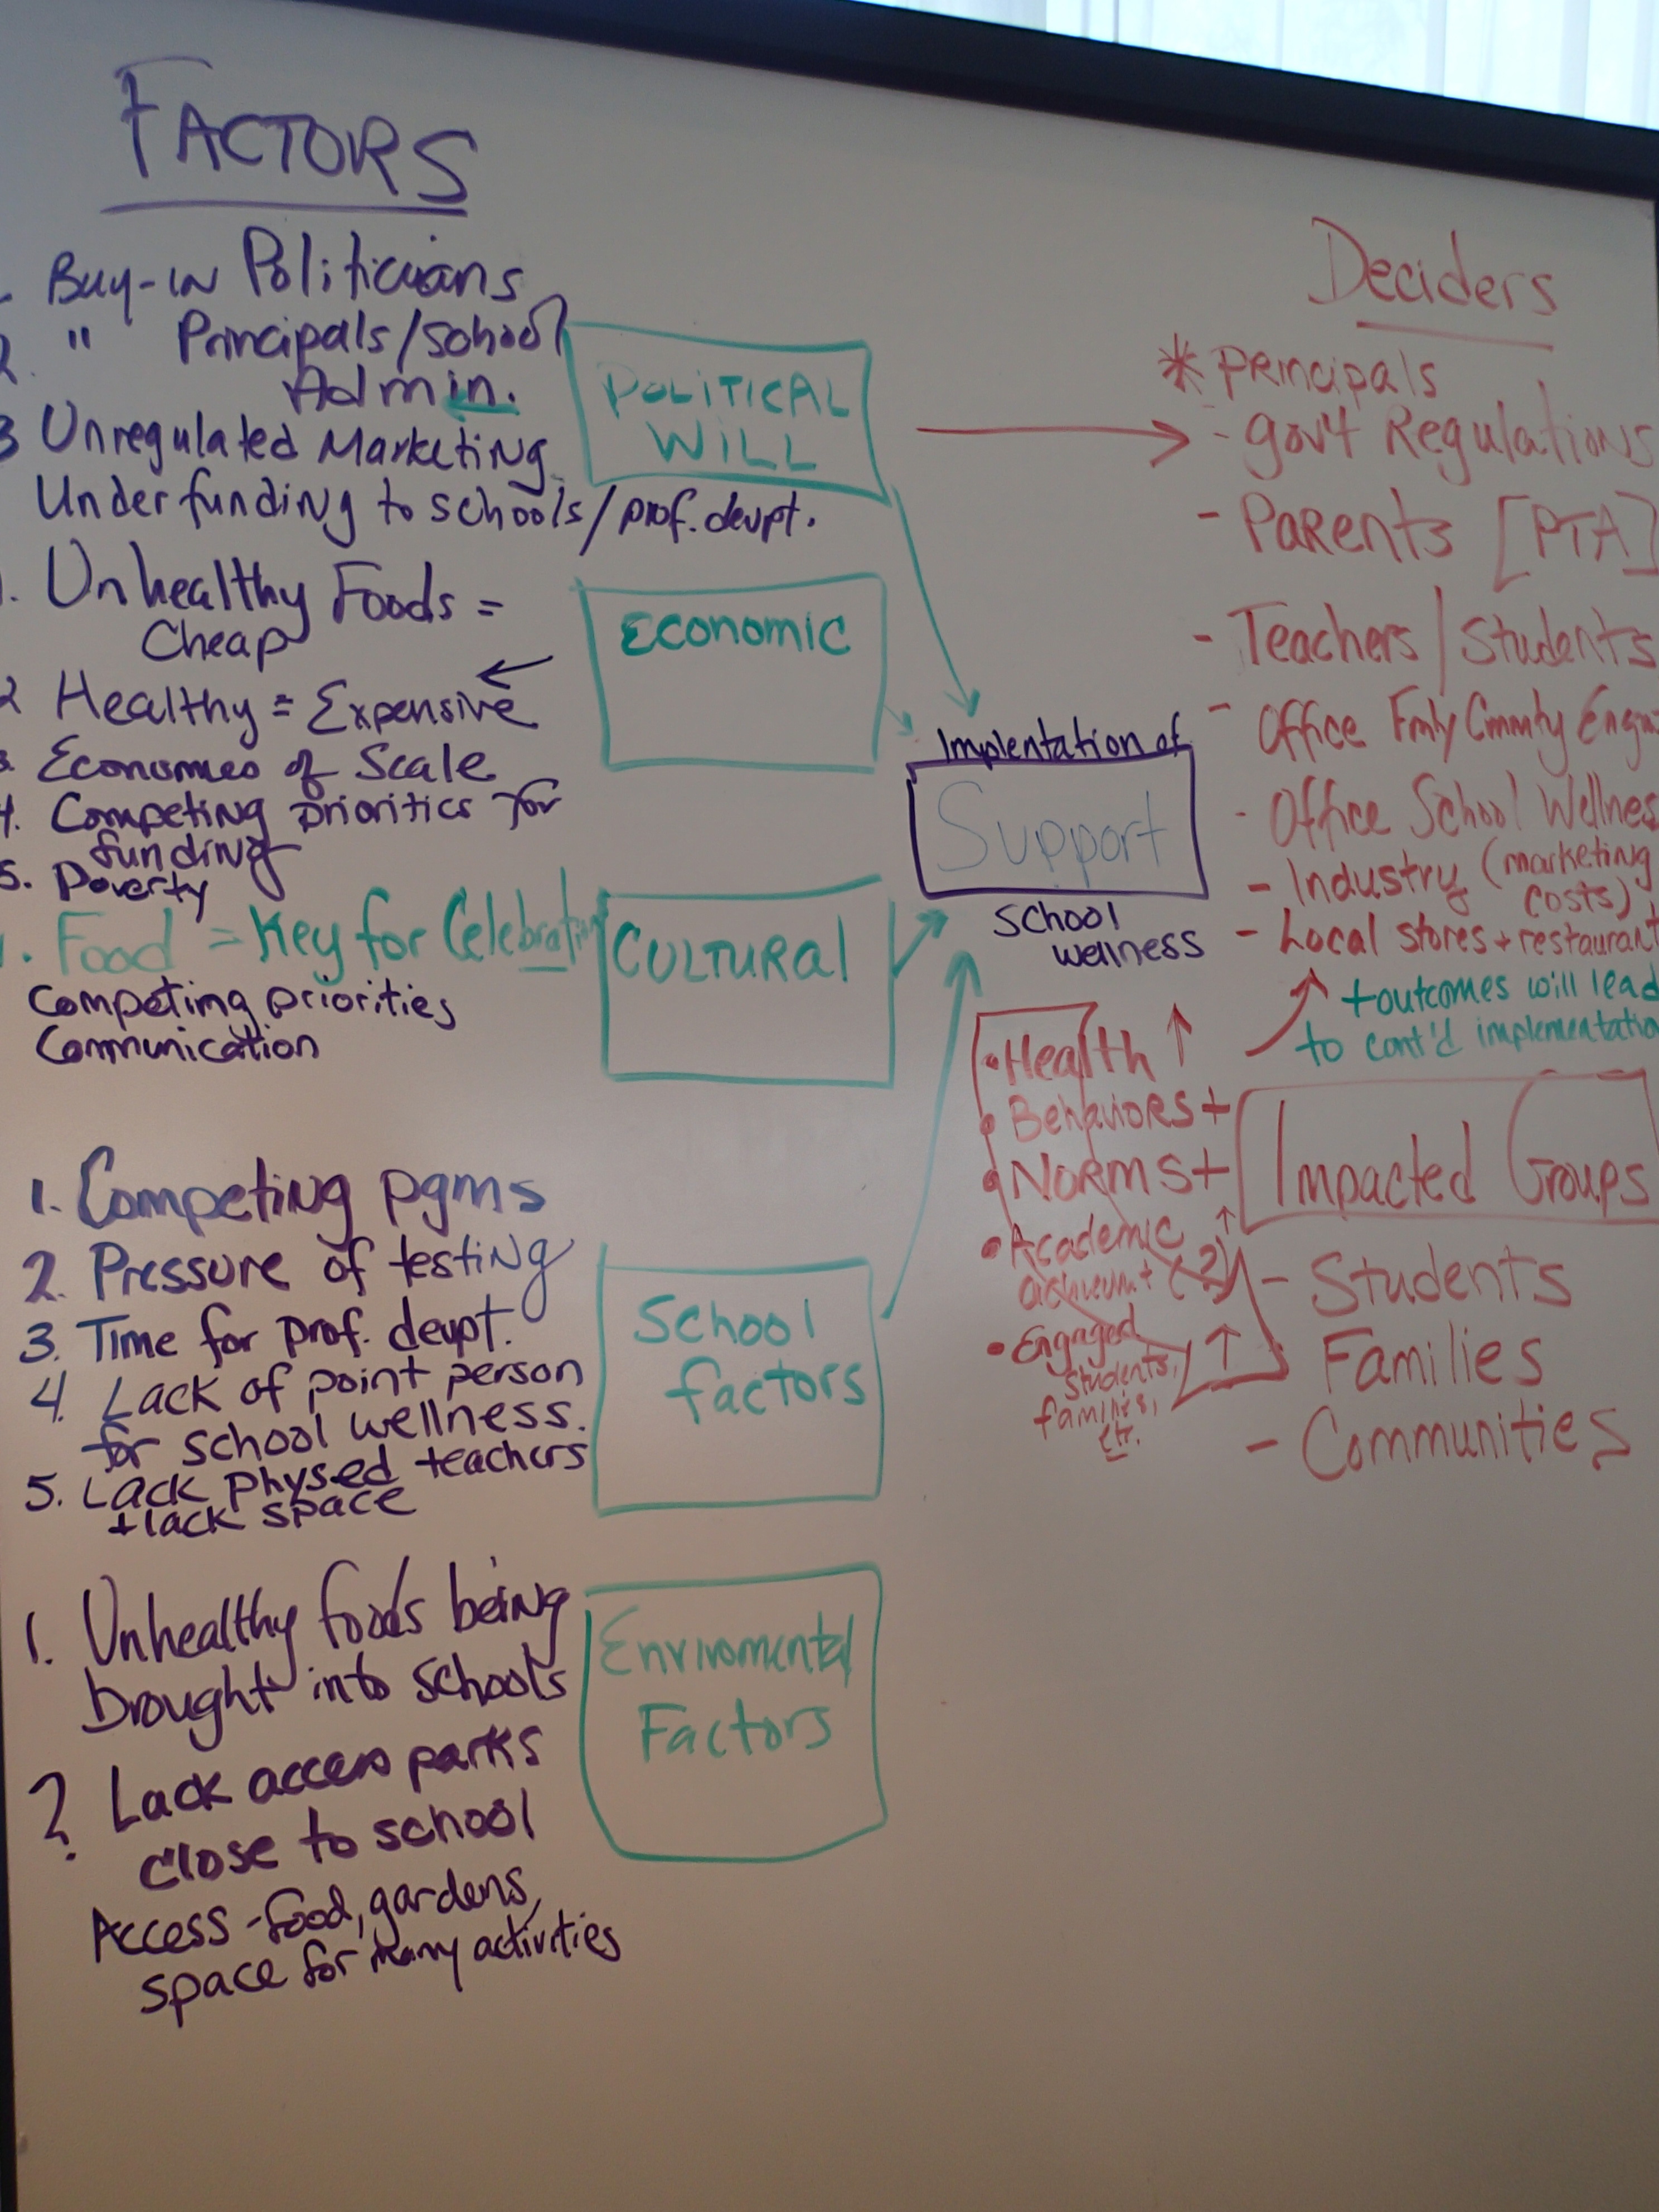 FACTORS
Buy-in Politicians
2. " Principals/school
Admin.
3 Unregulated Marketing
Underfunding to schools/prof. devpt.
POLITICAL
WILL
1. Unhealthy Foods =
Cheap
2 Healthy = Expensive
3. Economies of Scale
4. Competing priorities for
funding
5. Poverty
ECONOMIC
1. Food = Key for Celebration
Competing priorities
Communication
CULTURAl
1. Competing pgms
2. Pressure of testing
3. Time for prof. devpt.
4. Lack of point person
for school wellness.
5. Lack physed teachers
+ lack space
School
factors
1. Unhealthy foods being
brought into schools
2. Lack access parks
close to school
Access - food, gardens,
space for many activities
Enviromental
Factors
Implentation of
Support
School
wellness
Deciders
* Principals
- gov't Regulations
- Parents [PTA]
- Teachers / Students
- Office Fmly Cmmty
- Office School Wellnes
- Industry (marketing
costs)
- Local stores + restaurant
+ outcomes will lead
to cont'd implementatio
• Health ↑
• Behaviors +
• Norms +
• Academic ↑
(?)
• Engaged ↑
students,
families,
etc.
Impacted Groups
- Students
Families
- Communities